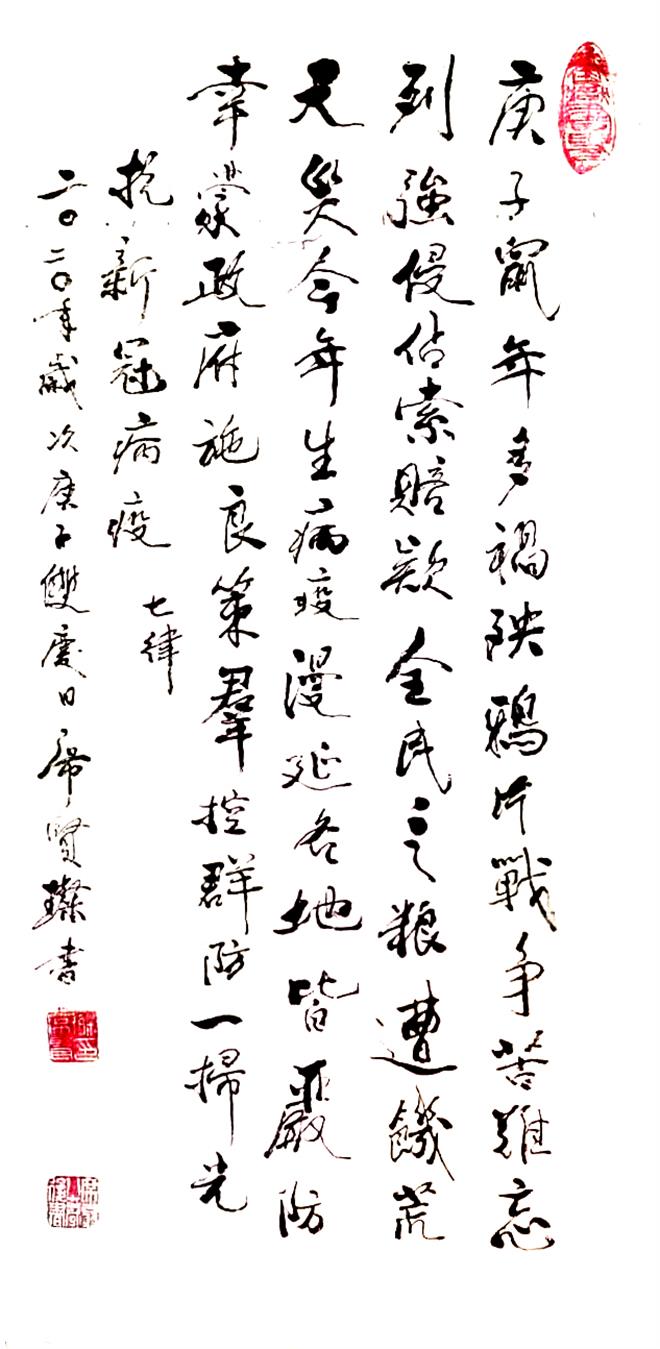 庚子鼠年多禍殃鴉片戰争苦難忘
列強侵佔索賠款全民之粮遭饑荒
天災今年生病疫漫延各地皆嚴防
幸蒙政府施良策羣控群防一掃光
抗新冠病疫
七律
二〇二〇年歲次庚子雙慶日席賢璨書